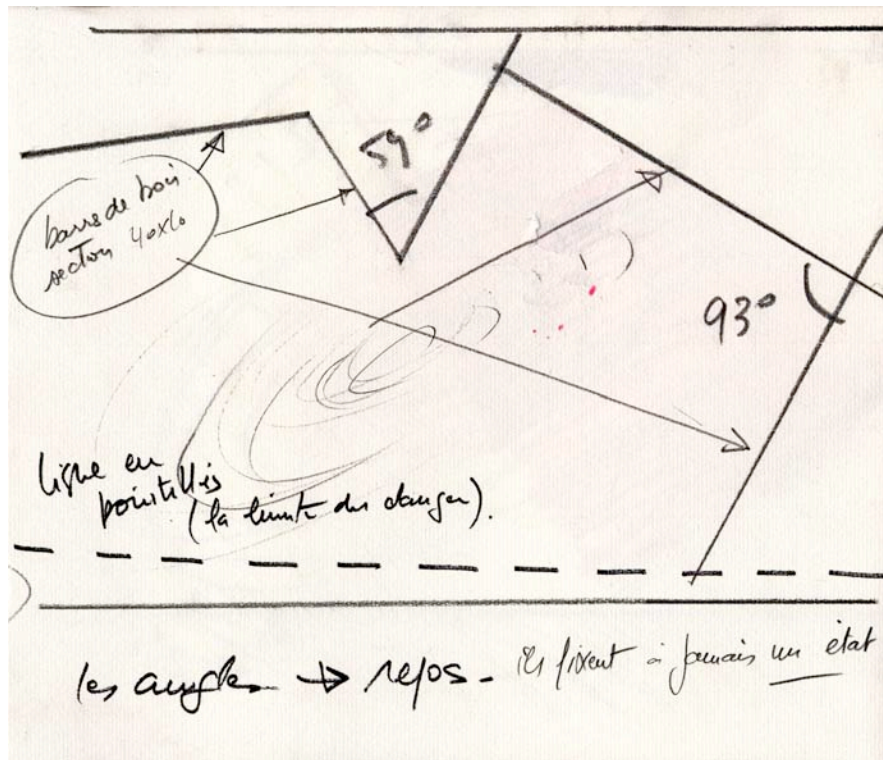 59°
barre de bois
section 40x40
93°
ligne en
pointillés
(la limite du danger).
les angles → repos.
ils fixent à jamais un état